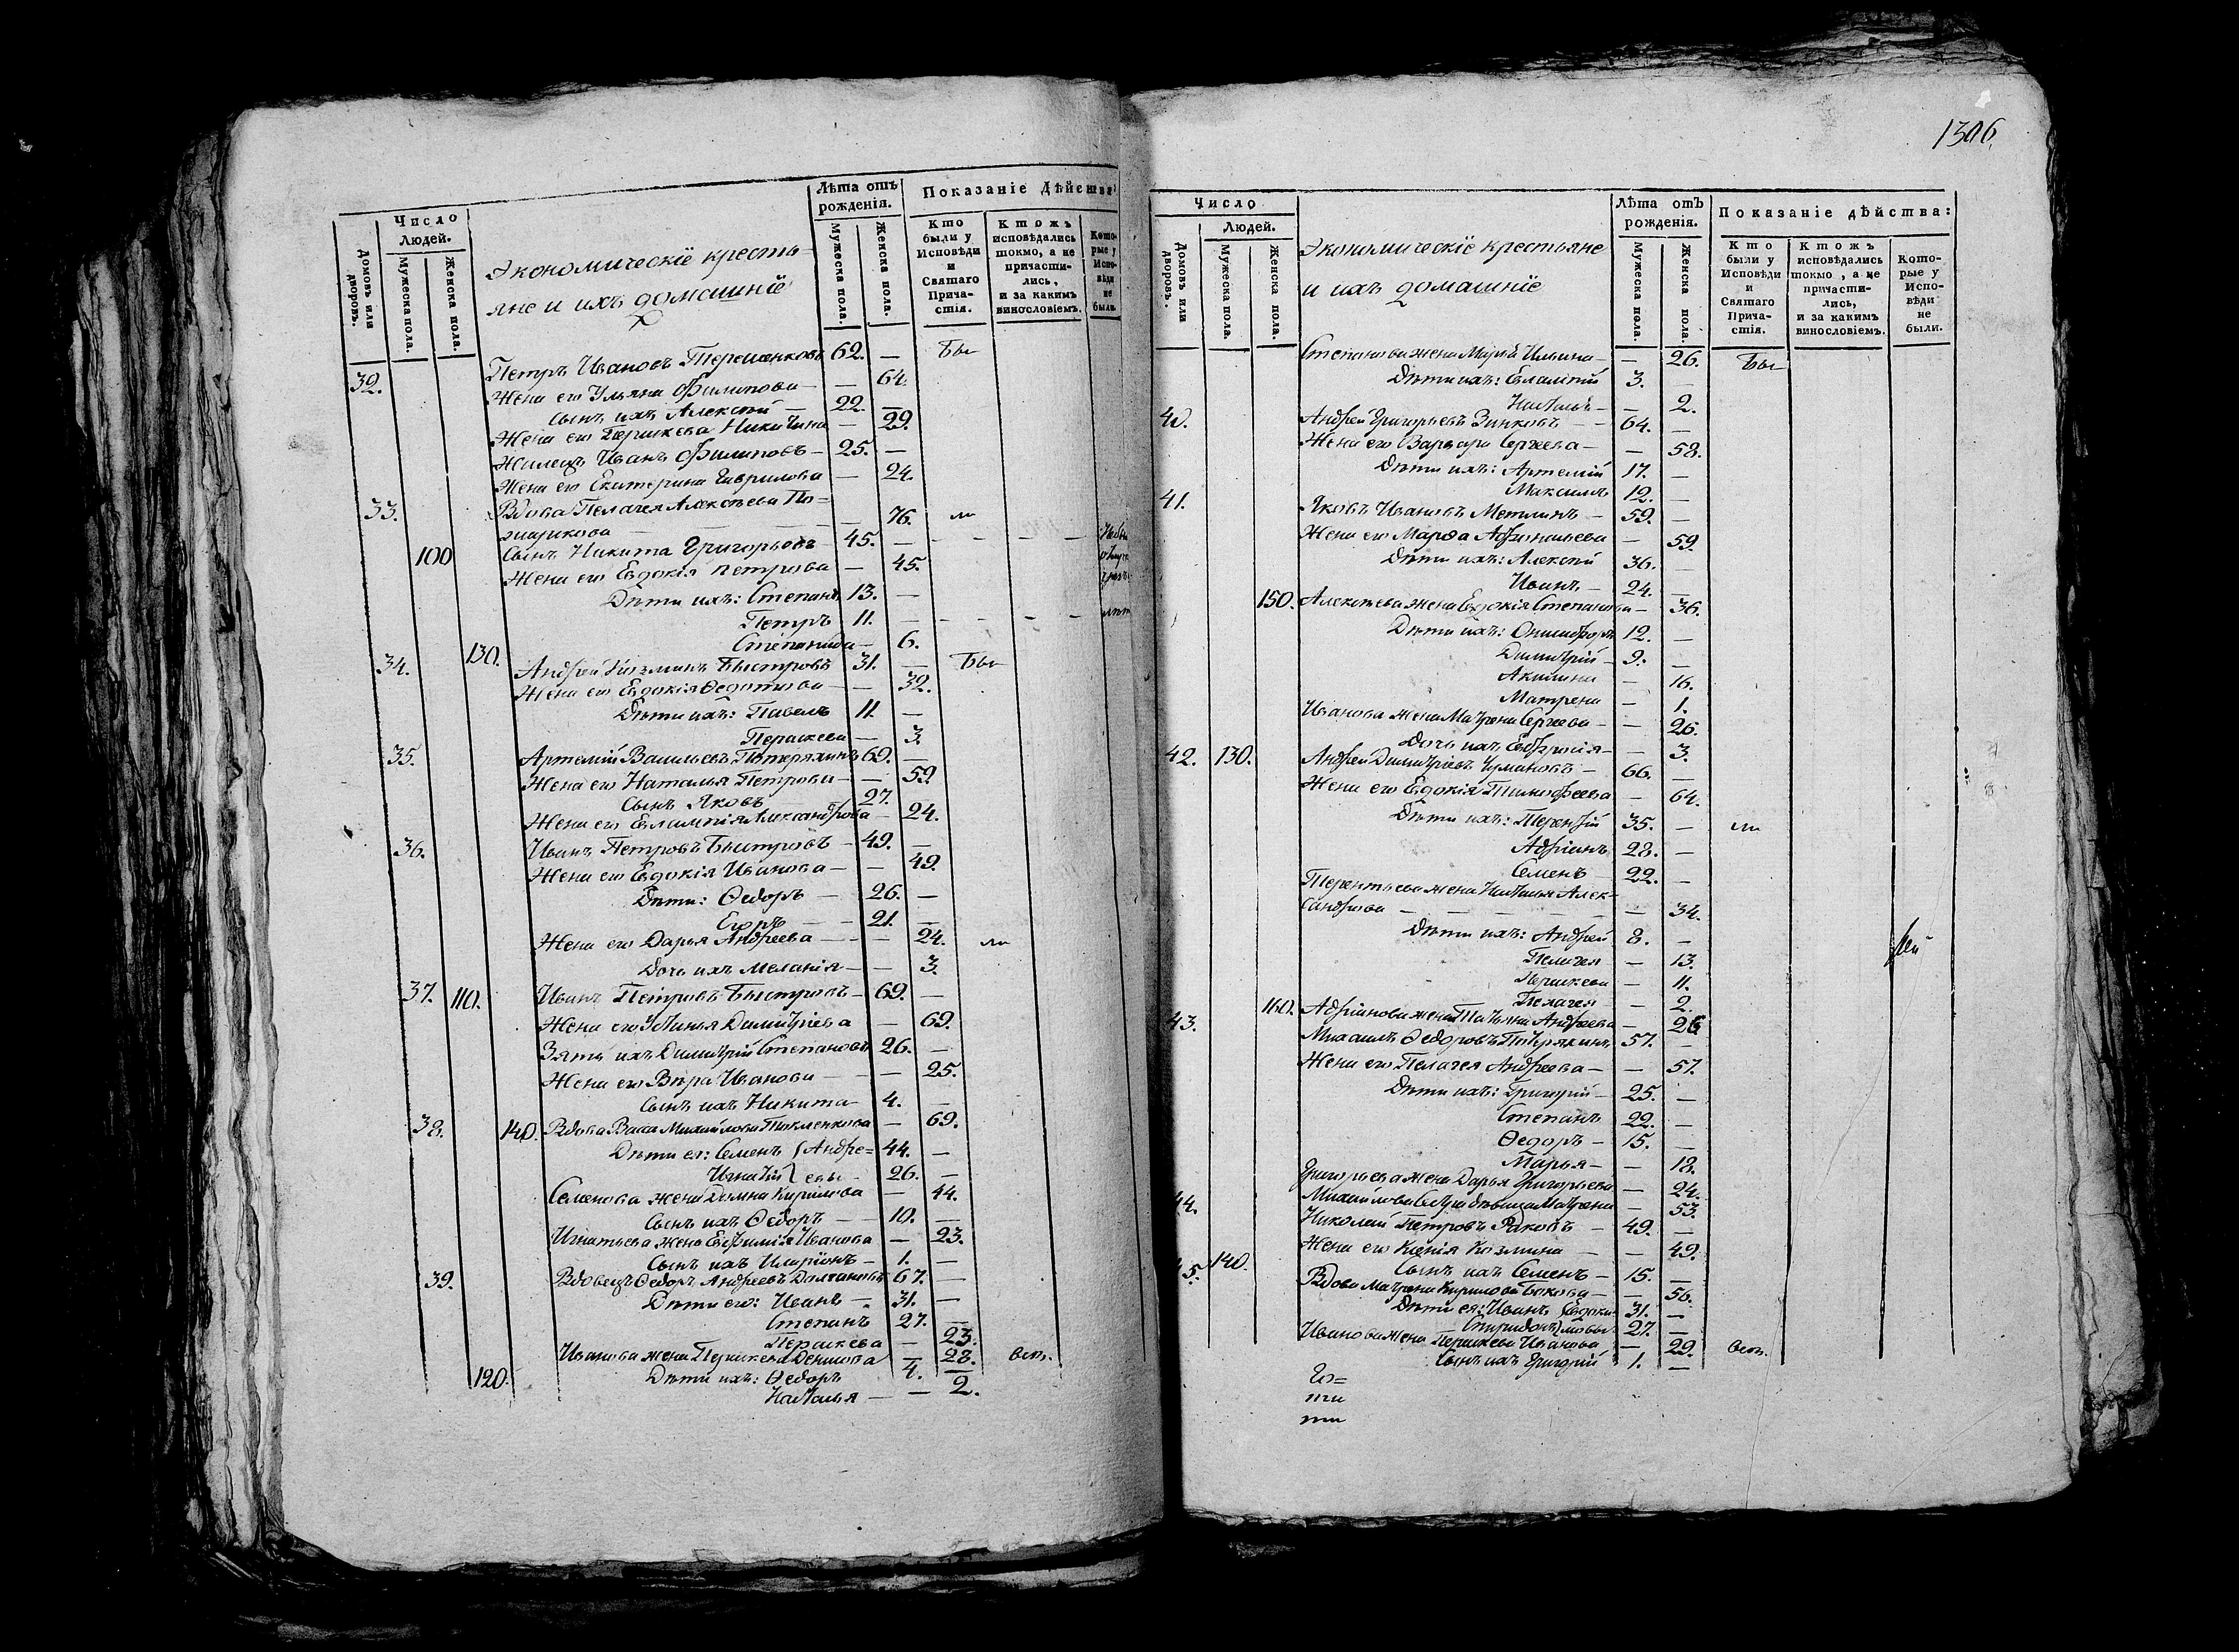 Число
Людей.
Лѣта отъ
рожденія.
Показаніе дѣйства:
Домовъ или дворовъ.
Мужеска пола.
Женска пола.
Экономическіе кресть-
яне и ихъ домашніе
Мужеска пола.
Женска пола.
Кто были у Исповѣди и Святаго Причастія.
Ктожъ исповѣдались токмо, а не причастились, и за какимъ винословіемъ.
Которые у Исповѣди не были.
32. Петръ Ивановъ 62. — бы
Жена его Ульяна Филипова — — 64.
Сынъ ихъ Алексѣй — 22. —
Жена его Параскева Никитина — 29.
Жилецъ Иванъ Филиповъ — 25. —
Жена его Екатерина Гаврилова — 24.
33. Вдова Пелагея Алексѣева
— 76. ли
100 Сынъ Никита Григорьевъ 45. —
Жена его Евдокія Петрова — 45.
Дѣти ихъ: Степанъ 13. —
Петръ 11. —
130. Степанида — 6.
34. Андрей Козминъ Быстровъ 31. — бы
Жена его Евдокія Ѳедотова — — 32.
Дѣти ихъ: Павелъ 11. —
Параскева — 3.
35. Артемій Васильевъ Потеряхинъ 69. —
Жена его Наталья Петрова — — 59
Сынъ Яковъ 27.
Жена его Евлампія Александрова — 24.
36. Иванъ Петровъ Быстровъ — 49. —
Жена его Евдокія Иванова — — 49.
Дѣти: Ѳедоръ — 26. —
Егоръ — 21. —
Жена его Дарья Андреева — — 24. ли
Дочь ихъ Меланія — — 3.
37. 110. Иванъ Петровъ Быстровъ — 69. —
Жена его Устинья Димитріева — 69.
Зять ихъ Димитрій Степановъ 26. —
Жена его Вѣра Иванова — 25.
Сынъ ихъ Никита — 4. —
38. 140. Вдова Васса Михайлова — 69.
Дѣти ея: Семенъ Андре= 44. —
Игнатій евы 26. —
Семенова жена Домна Кирилова — 44.
Сынъ ихъ Ѳедоръ — 10. —
Игнатьева жена Евфимія Иванова — 23.
Сынъ ихъ Иларіонъ — 1. —
39. Вдовецъ Ѳедоръ Андреевъ Долгановъ 67. —
Дѣти его: Иванъ — 31. —
Степанъ 27. —
Параскева — 23.
Иванова жена Параскева Денисова — 28. всѣ.
120. Дѣти ихъ: Ѳедоръ 4. —
Наталья — — 2.
1306.
Число
Людей.
Лѣта отъ
рожденія.
Показаніе дѣйства:
Домовъ или дворовъ.
Мужеска пола.
Женска пола.
Экономическіе крестьяне
и ихъ домашніе
Мужеска пола.
Женска пола.
Кто были у Исповѣди и Святаго Причастія.
Ктожъ исповѣдались токмо, а не причастились, и за какимъ винословіемъ.
Которые у Исповѣди не были.
Степанова жена Марья Ильина — — 26. бы
Дѣти ихъ: Евлампій 3. —
Наталья — — 2.
40. Андрей Григорьевъ Зинковъ — 64. —
Жена его Варвара Сергеева — — 58.
Дѣти ихъ: Артемій 17. —
Максимъ 12. —
41. Яковъ Ивановъ Метлинъ — 59. —
Жена его Марѳа Афонасьева — 59.
Дѣти ихъ: Алексѣй 36. —
Иванъ — 24. —
150. Алексѣева жена Евдокія Степанова — 36.
Дѣти ихъ: Онисифоръ 12. —
Димитрій 9. —
Акилина — 16.
Матрена — 1.
Иванова жена Матрена Сергеева — — 26.
Дочь ихъ Евфросія — — 3.
42. 130. Андрей Димитріевъ Чумаковъ — 66. —
Жена его Евдокія Тимофеева — 64.
Дѣти ихъ: Терентій 35. — ли
Адріанъ 28. —
Семенъ 22. —
Терентьева жена Наталья Алек-
сандрова — — — — — — 34.
Дѣти ихъ: Андрей 8. —
Пелагея — 13.
Параскева — 11.
Пелагея — 2.
160. Адріанова жена Татьяна Андреева — 26
43. Михаилъ Ѳедоровъ Потеряхинъ 57. —
Жена его Пелагея Андреева — — 57.
Дѣти ихъ: Григорій — 25. —
Степанъ 22. —
Ѳедоръ — 15. —
Марья — — 18.
Григорьева жена Дарья Григорьева — 24.
Михайлова Сестра дѣвица Матрена — 53.
44. Николай Петровъ Раковъ — 49. —
Жена его Ксенія Козмина — — 49.
140. Сынъ ихъ Семенъ — 15. —
45. Вдова Матрена Кирилова Бокова — — 56.
Дѣти ея: Иванъ Евдоки- 31. —
Спиридонъ мовы 27. —
Иванова жена Параскева Иванова — 29. всѣ.
Сынъ ихъ Григорій 1. —